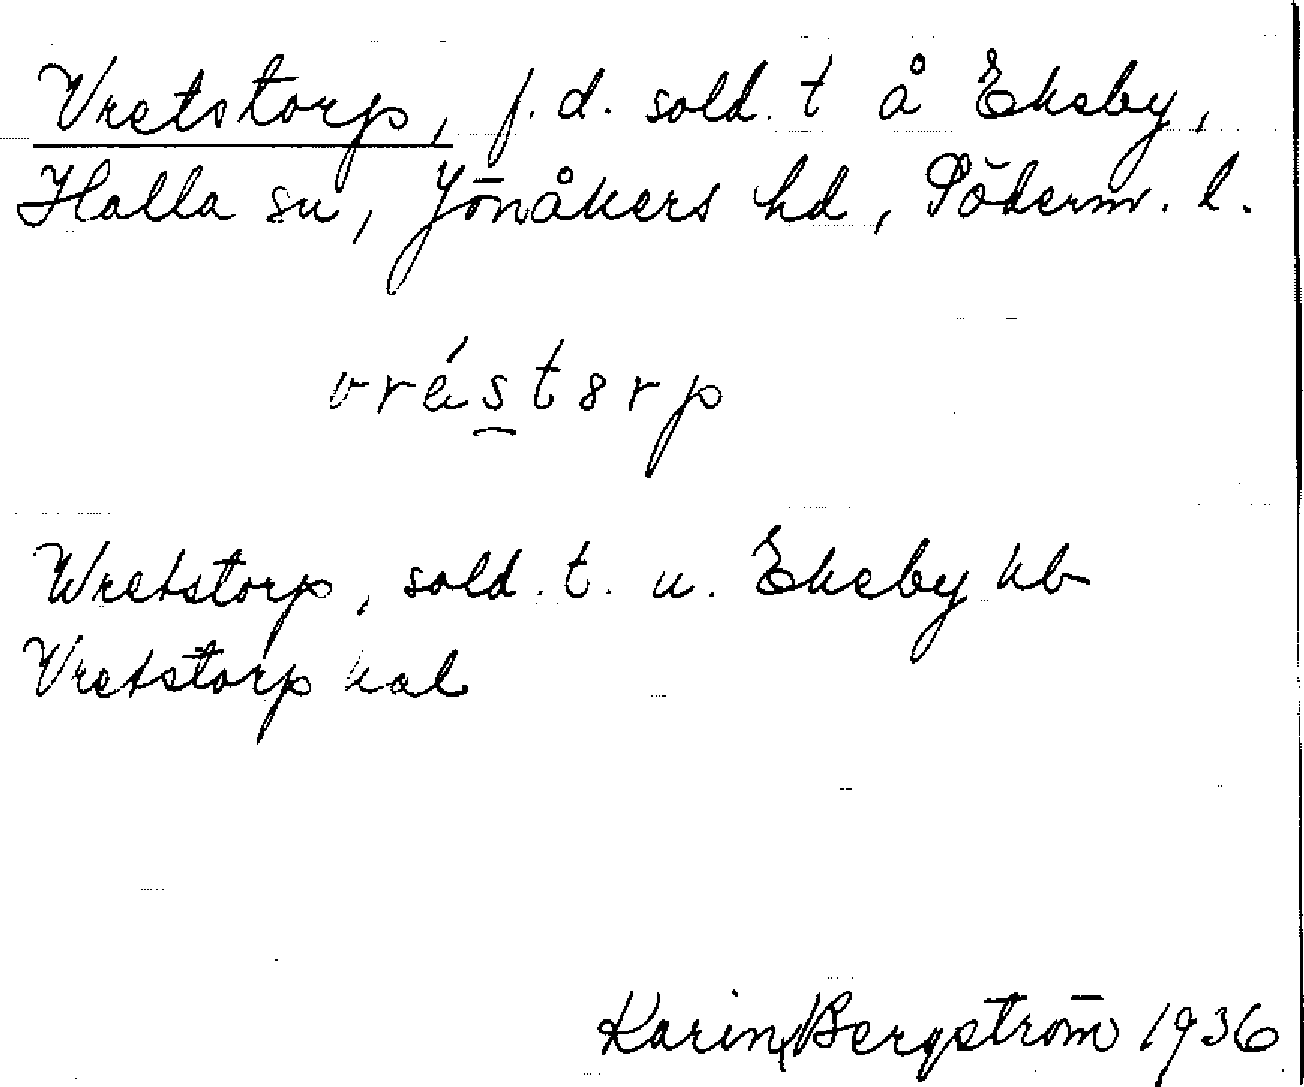 Vretstorp, f.d. sold. t å Ekeby,
Halla sn, Jönåkers hd, Söderm. l.
vréstorp
Wretstorp, sold. t. u. Ekeby kb
Vretstorp kal
Karin Bergström 1936